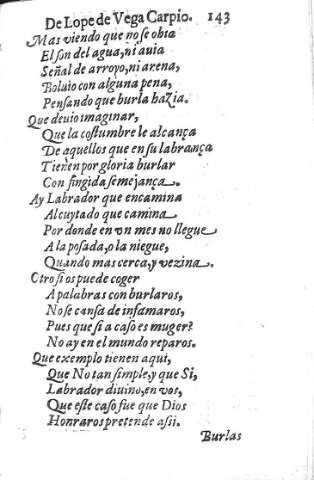 De Lope de Vega Carpio. 143
Mas viendo que no se obia
El son del agua, ni auia
Señal de arroyo, ni arena,
Boluio con alguna pena,
Pensando que burla hazia.
Que deuio imaginar,
Que la costumbre le alcança
De aquellos que en su labrança
Tienen por gloria burlar
Con fingida semejança.
Ay Labrador que encamina
Al cuytado que camina
Por donde en vn mes no llegue
A la posada, o la niegue,
Quando mas cerca, y vezina.
Otro si os puede coger
A palabras con burlaros,
No se cansa de infamaros,
Pues que si a caso es muger?
No ay en el mundo reparos.
Que exemplo tienen aqui,
Que No tan simple, y que Si,
Labrador diuino, en vos,
Que este caso fue que Dios
Honraros pretende assi.
Burlas